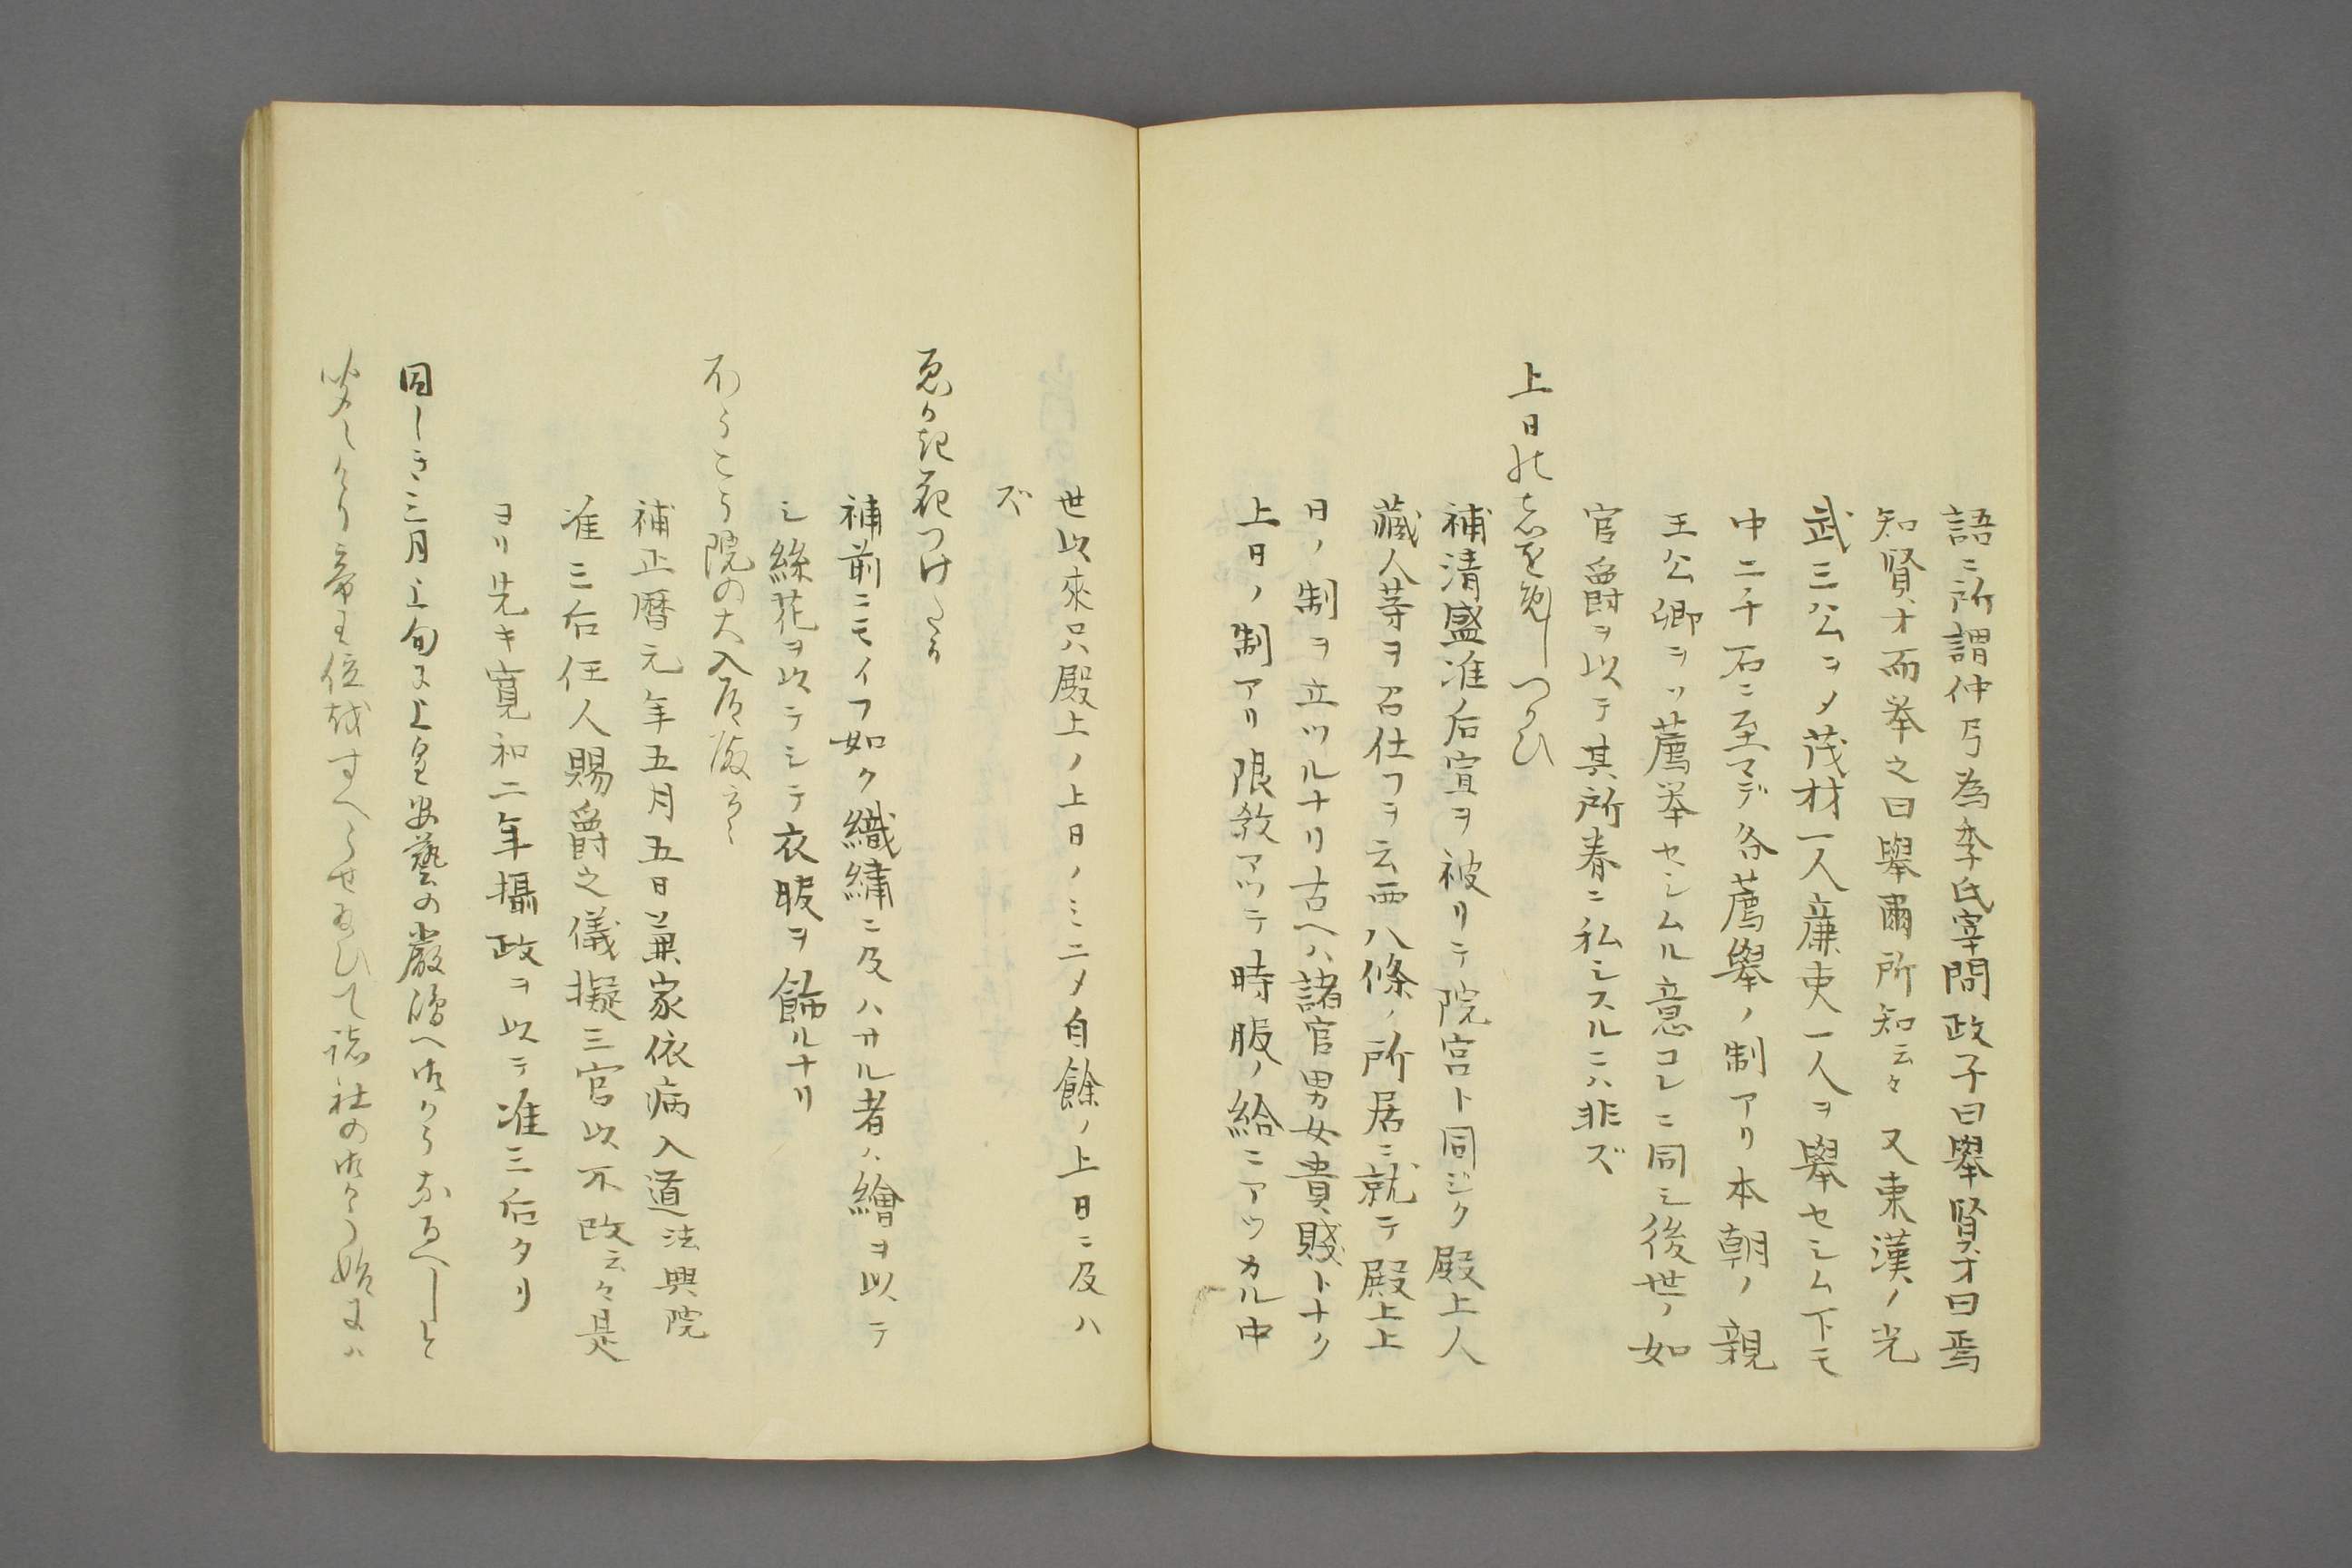 語ニ所謂仲弓為季氏宰問政子曰舉賢才曰焉
知賢才而挙之曰舉爾所知云々又東漢ノ光
武三公ヲメ茂材一人廉吏一人ヲ舉セシム下モ
中二千石ニ至マデ各薦舉ノ制アリ本朝ノ親
王公卿ヲソ薦挙セシムル意コレニ同シ後世ノ如
官爵ヲ以テ其所眷ニ私シスルニハ非ズ
上日のものをめしつかひ
補清盛准后宣ヲ被リテ院宮ト同ジク殿上人
藏人等ヲ召仕フヲ云西八條ノ所居ニ就テ殿上上
日ノ制ヲ立ツルナリ古ヘハ諸官男女貴賤トナク
上日ノ制アリ限数アツテ時服ノ給ニアツカル中
世以來只殿上ノ上日ノミニメ自餘ノ上日ニ及ハ
ズ
ゑかき花つけたり
補前ニモイフ如ク織繡ニ及ハサル者ハ繪ヲ以テ
シ絲花ヲ以テシテ衣服ヲ飾ルナリ
ほうこう院の大入道殿云々
補正暦元年五月五日兼家依病入道法興院
准三后任人賜爵之儀擬三宮以不改云々是
ヨリ先キ寛和二年攝政ヲ以テ准三后タリ
同しき三月上旬に上皇安藝の嚴嶋へ御かうなるへしと
聞しけり帝王位をすへらせ給ひて諸社の御かう始には